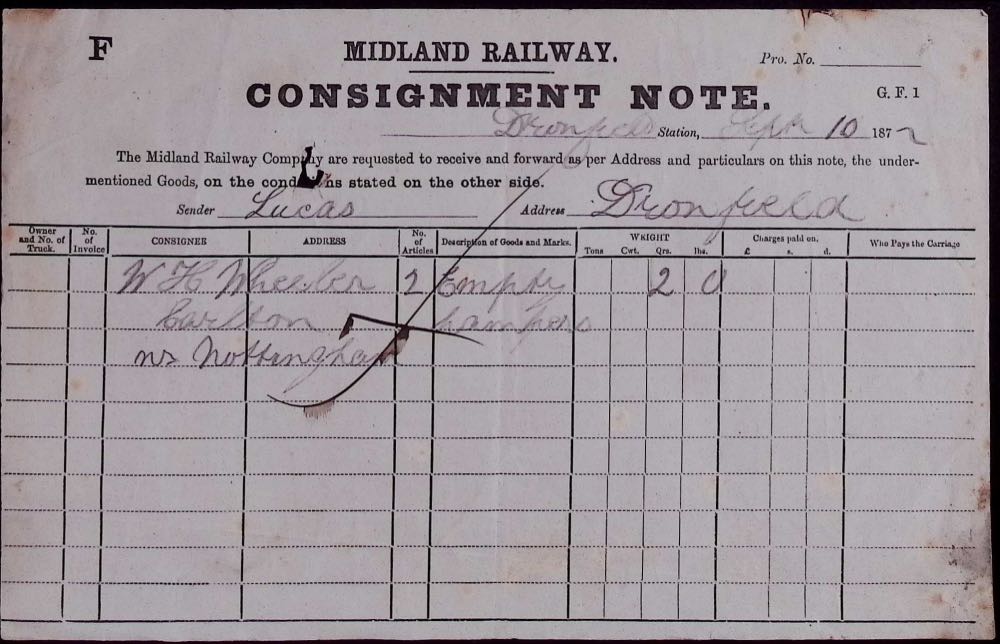 F
MIDLAND RAILWAY.
Pro. No.
CONSIGNMENT NOTE.
G. F. 1
Dronfield Station, Sept 10 1872
The Midland Railway Company are requested to receive and forward as per Address and particulars on this note, the under-
mentioned Goods, on the conditions stated on the other side.
Sender Lucas Address Dronfield
Owner and No. of Truck. No. of Invoice CONSIGNEE ADDRESS No. of Articles Description of Goods and Marks. WEIGHT Tons Cwt. Qrs. lbs. Charges paid on. £ s. d. Who Pays the Carriage
W H Wheeler 2 Empty 2 0
Carlton hampers
nr Nottingham